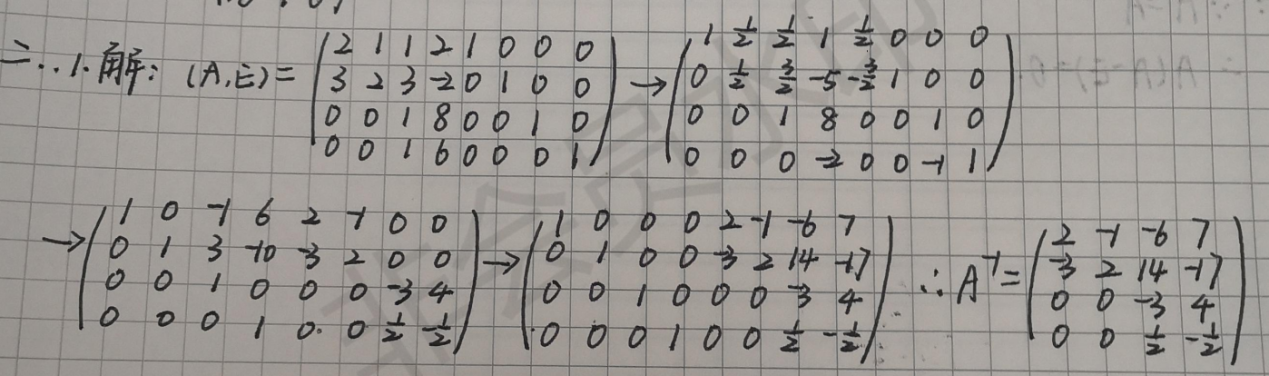 二、1. 解: (A,E) = $\begin{pmatrix} 2 & 1 & 1 & 2 & 1 & 0 & 0 & 0 \\ 3 & 2 & 3 & -2 & 0 & 1 & 0 & 0 \\ 0 & 0 & 1 & 8 & 0 & 0 & 1 & 0 \\ 0 & 0 & 1 & 6 & 0 & 0 & 0 & 1 \end{pmatrix} \to \begin{pmatrix} 1 & \frac{1}{2} & \frac{1}{2} & 1 & \frac{1}{2} & 0 & 0 & 0 \\ 0 & \frac{1}{2} & \frac{3}{2} & -5 & -\frac{3}{2} & 1 & 0 & 0 \\ 0 & 0 & 1 & 8 & 0 & 0 & 1 & 0 \\ 0 & 0 & 0 & -2 & 0 & 0 & -1 & 1 \end{pmatrix}$
$\to \begin{pmatrix} 1 & 0 & -1 & 6 & 2 & -1 & 0 & 0 \\ 0 & 1 & 3 & -10 & -3 & 2 & 0 & 0 \\ 0 & 0 & 1 & 0 & 0 & 0 & -3 & 4 \\ 0 & 0 & 0 & 1 & 0 & 0 & \frac{1}{2} & -\frac{1}{2} \end{pmatrix} \to \begin{pmatrix} 1 & 0 & 0 & 0 & 2 & -1 & -6 & 7 \\ 0 & 1 & 0 & 0 & -3 & 2 & 14 & -17 \\ 0 & 0 & 1 & 0 & 0 & 0 & -3 & 4 \\ 0 & 0 & 0 & 1 & 0 & 0 & \frac{1}{2} & -\frac{1}{2} \end{pmatrix} \therefore A^{-1} = \begin{pmatrix} 2 & -1 & -6 & 7 \\ -3 & 2 & 14 & -17 \\ 0 & 0 & -3 & 4 \\ 0 & 0 & \frac{1}{2} & -\frac{1}{2} \end{pmatrix}$